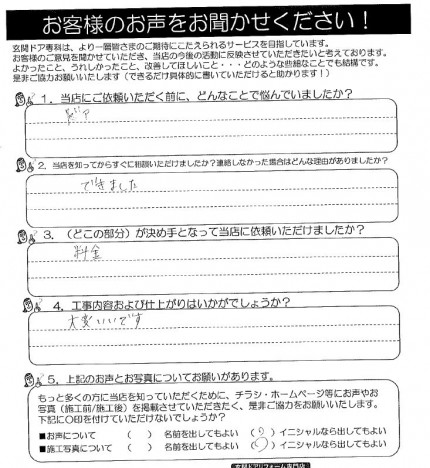 お客様のお声をお聞かせください！
玄関ドア専科は、より一層皆さまのご期待にこたえられるサービスを目指しています。
お客様のご意見を聞かせていただき、当店の今後の活動に反映させていただきたいと考えております。
よかったこと、うれしかったこと、改善してほしいこと・・・どのような些細なことでも結構です。
是非ご協力お願いいたします（できるだけ具体的に書いていただけると助かります！）
1．当店にご依頼いただく前に、どんなことで悩んでいましたか？
ドア
2．当店を知ってからすぐに相談いただけましたか？連絡しなかった場合はどんな理由がありましたか？
できました
3．（どこの部分）が決め手となって当店に依頼いただけましたか？
料金
4．工事内容および仕上がりはいかがでしょうか？
大変いいです
5．上記のお声とお写真についてお願いがあります。
もっと多くの方に当店を知っていただくために、チラシ・ホームページ等にお声やお
写真（施工前/施工後）を掲載させていただきたく、是非ご協力をお願いいたします。
下記に〇印を付けていただけないでしょうか？
■お声について （ ） 名前を出してもよい （○） イニシャルなら出してもよい
■施工写真について （ ） 名前を出してもよい （○） イニシャルなら出してもよい
玄関ドアリフォーム専門店